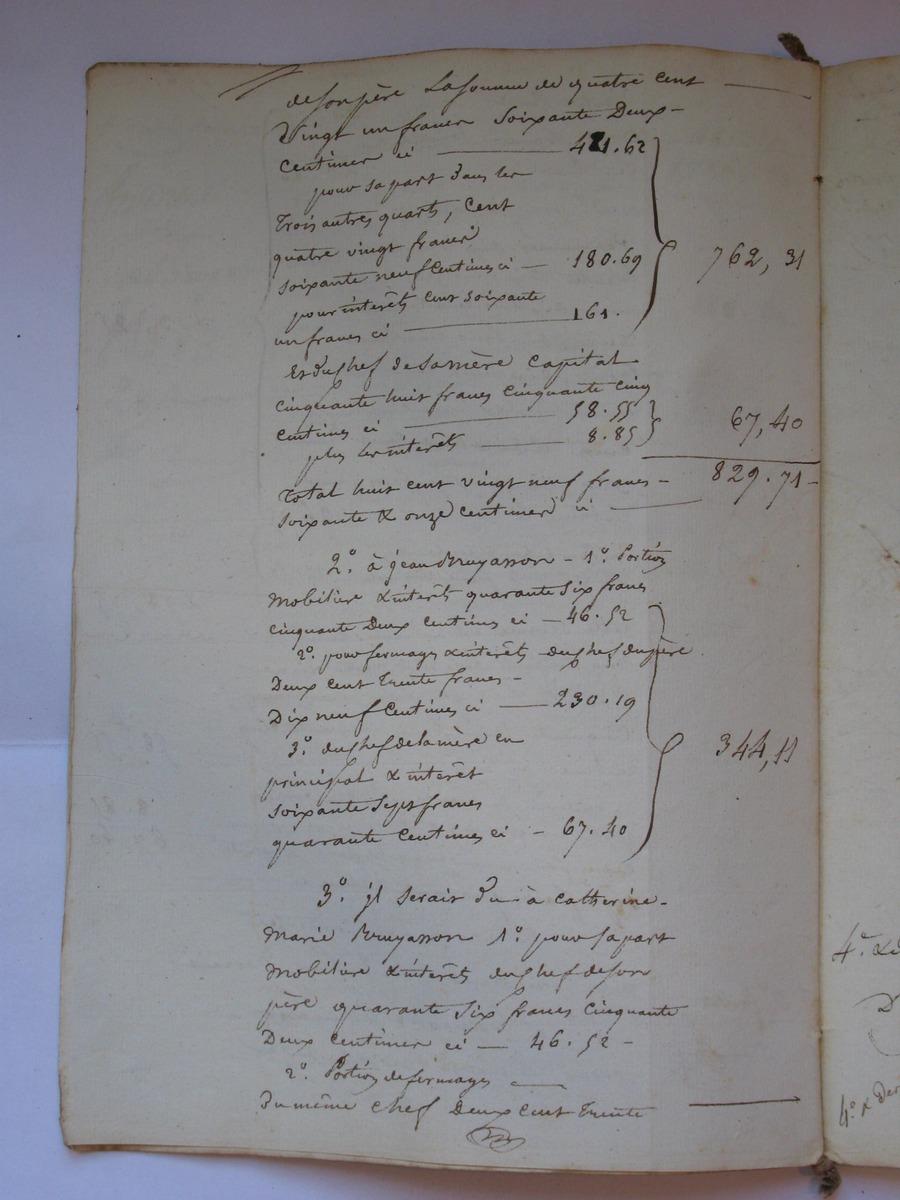 de son père La somme de quatre cent
Vingt un francs Soixante Deux
Centimes ci 421.62
pour sa part Dans les
Trois autres quarts, Cent
quatre vingt francs
soixante neuf Centimes ci 180.69
762, 31
pour intérêts Cent soixante
un francs ci 161.
Et du chef de sa mère Capital
Cinquante huit francs Cinquante Cinq
Centimes ci 58.55
plus les intérêts 8.85
67,40
Total huit cent vingt neuf francs 829.71
soixante & onze Centimes ci
2.° à jean Bruyasson - 1.° Portion
Mobilière & intérêts quarante Six francs
Cinquante Deux Centimes ci 46.52
2.° pour fermages & intérêts du chef du père
Deux cent Trente francs
Dix neuf Centimes ci 230.19
3.° du chef de la mère en
344,11
principal & intérêt
soixante Sept francs
quarante Centimes ci 67.40
3.° il serait Du à Catherine
Marie Bruyasson 1.° pour sa part
Mobilière & intérêts du chef de son
père quarante Six francs Cinquante
Deux Centimes ci 46.52
2.° Portion de fermages
Du même chef Deux Cent Trente